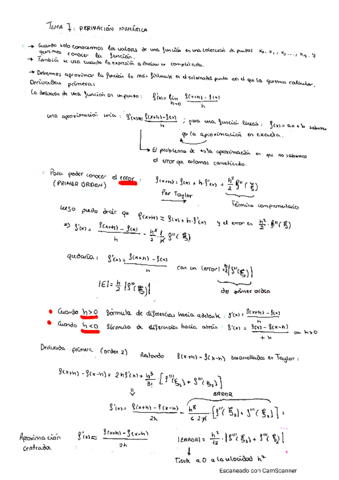 TEMA 7: DERIVACIÓN NUMÉRICA
→ Cuando solo conocemos los valores de una función en una colección de puntos x₀, x₁, x₂, ..., xₙ. Y queremos conocer la función.
→ También se usa cuando la expresión es complicada.
→ Debemos aproximar la función lo más en el punto en el que queremos calcular.
Derivadas primeras:
La derivada de una función en un punto: f'(x) = lim h→0 f(x+h) - f(x) / h
una aproximación sería: f'(x) ≈ f(x+h) - f(x) / h ; para una función lineal: f(x) = a + bx
la aproximación es exacta.
→ El problema de esta aproximación es que no sabemos el error que estamos cometiendo.
· Para poder conocer el error:
(PRIMER ORDEN)
f(x+h) = f(x) + h·f'(x) + h²/2 f''(ξ)
Por Taylor
Término complementario
luego puedo decir que f(x+h) ≈ f(x) + h·f'(x) y el error es h²/2 f''(ξ)
⇒ f'(x) = f(x+h) - f(x) / h - h²/2 f''(ξ)
quedaría: f'(x) ≈ f(x+h) - f(x) / h con un |error| = h/2 |f''(ξ)|
|E| = h/2 |f''(ξ)|
de primer orden
• Cuando h>0 fórmula de diferencias hacia adelante: f'(x) = f(x+h) - f(x) / h
• Cuando h<0 fórmula de diferencias hacia atrás: f'(x) = f(x) - f(x-h) / +h con h>0
Derivada primera (orden 2) Restando f(x+h) - f(x-h) desarrollados en Taylor:
f(x+h) - f(x-h) = 2h f'(x) + h³/3! [f'''(ξ₁) + f'''(ξ₂)]
ERROR
f'(x) = f(x+h) - f(x-h) / 2h - h³/6·2h [f'''(ξ₁) + f'''(ξ₂)] =
Aproximación centrada
f'(x) ≈ f(x+h) - f(x-h) / 2h
|ERROR| = h²/12 |f'''(ξ₁) + f'''(ξ₂)|
Tiende a 0 a la velocidad h²
Escaneado con CamScanner